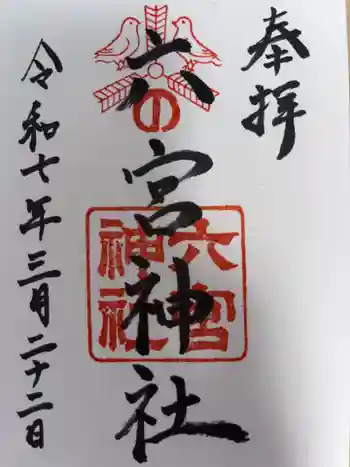 奉拝
六宮神社
六宮
神社
の
令和七年三月二十二日